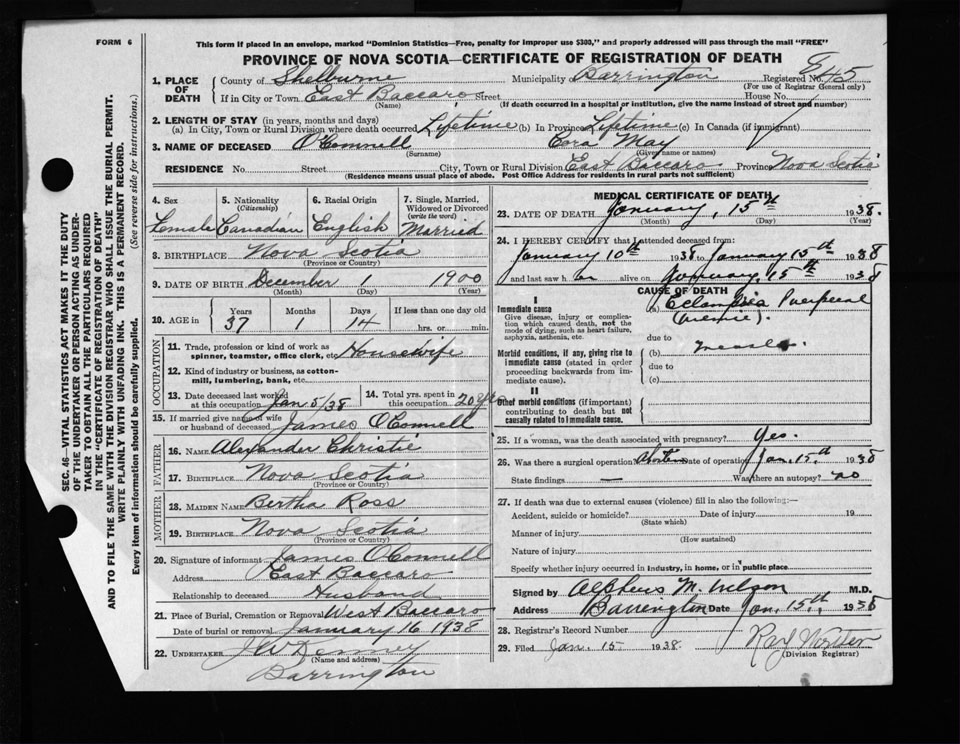 FORM 6
This form if placed in an envelope, marked "Dominion Statistics—Free, penalty for improper use $300," and properly addressed will pass through the mail "FREE"
PROVINCE OF NOVA SCOTIA—CERTIFICATE OF REGISTRATION OF DEATH
1. PLACE OF DEATH
County of Shelburne Municipality of Barrington Registered No. 45
(For use of Registrar General only)
If in City or Town East Baccaro Street House No.
(Name) (If death occurred in a hospital or institution, give the name instead of street and number)
2. LENGTH OF STAY (in years, months and days)
(a) In City, Town or Rural Division where death occurred Lifetime (b) In Province Lifetime (c) In Canada (if immigrant)
3. NAME OF DECEASED O'Connell Cora May
(Surname) (Given name or names)
RESIDENCE No. Street City, Town or Rural Division East Baccaro Province Nova Scotia
(Residence means usual place of abode. Post Office Address for residents in rural parts not sufficient)
4. Sex 5. Nationality (Citizenship) 6. Racial Origin 7. Single, Married, Widowed or Divorced (write the word)
Female Canadian English Married
8. BIRTHPLACE Nova Scotia
(Province or Country)
9. DATE OF BIRTH December 1 1900
(Month) (Day) (Year)
10. AGE in Years Months Days If less than one day old
37 1 14 hrs. or min.
OCCUPATION
11. Trade, profession or kind of work as spinner, teamster, office clerk, etc. Housewife
12. Kind of industry or business, as cotton-mill, lumbering, bank, etc.
13. Date deceased last worked at this occupation Jan 5/38 14. Total yrs. spent in this occupation 20 yrs
15. If married give name of wife or husband of deceased James O'Connell
FATHER
16. NAME Alexander Christie
17. Birthplace Nova Scotia
(Province or Country)
MOTHER
18. MAIDEN NAME Bertha Ross
19. BIRTHPLACE Nova Scotia
(Province or Country)
20. Signature of informant James O'Connell
Address East Baccaro
Relationship to deceased Husband
21. Place of Burial, Cremation or Removal West Baccaro
Date of burial or removal January 16 1938
22. UNDERTAKER J W Kenney
(Name and address)
Barrington
MEDICAL CERTIFICATE OF DEATH
23. DATE OF DEATH January, 15th 1938.
(Month) (Day) (Year)
24. I HEREBY CERTIFY that I attended deceased from:
January 10th 1938 to January 15th 1938
and last saw her alive on January 15th 1938
CAUSE OF DEATH
I
Immediate cause
Give disease, injury or complication which caused death, not the mode of dying, such as heart failure, asphyxia, asthenia, etc.
(a) Eclampsia Puerperal
(Uremic).
due to
Morbid conditions, if any, giving rise to immediate cause (stated in order proceeding backwards from immediate cause).
(b) Measles.
due to
(c)
II
Other morbid conditions (if important) contributing to death but not causally related to immediate cause.
25. If a woman, was the death associated with pregnancy? Yes.
26. Was there a surgical operation Date of operation Jan. 15th 1938
State findings — Was there an autopsy? no
27. If death was due to external causes (violence) fill in also the following:—
Accident, suicide or homicide? Date of injury 19
(State which)
Manner of injury
(How sustained)
Nature of injury
Specify whether injury occurred in industry, in home, or in public place
Signed by Alpheus M. Wilson M.D.
Address Barrington Date Jan. 15th, 1938
28. Registrar's Record Number
29. Filed Jan. 15 1938.
(Division Registrar)
SEC. 46—VITAL STATISTICS ACT MAKES IT THE DUTY
OF THE UNDERTAKER OR PERSON ACTING AS UNDER-
TAKER TO OBTAIN ALL THE PARTICULARS REQUIRED
IN THE "CERTIFICATE OF REGISTRATION OF DEATH"
AND TO FILE THE SAME WITH THE DIVISION REGISTRAR WHO SHALL ISSUE THE BURIAL PERMIT.
WRITE PLAINLY WITH UNFADING INK. THIS IS A PERMANENT RECORD.
Every item of information should be carefully supplied. (See reverse side for instructions.)